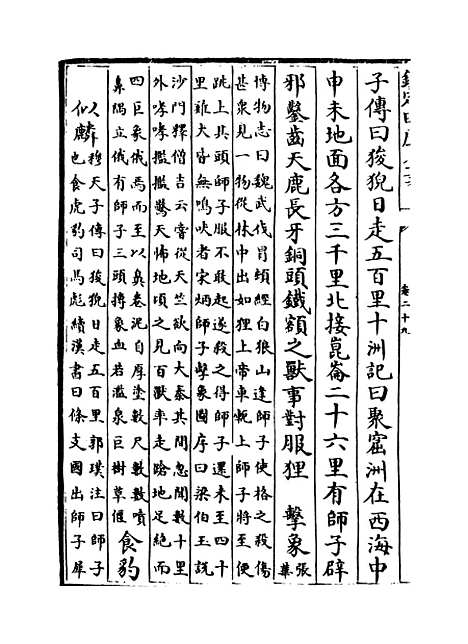 卷二十九
子傳曰狻猊日走五百里十洲記曰聚窟洲在西海中
申未地面各方三千里北接崑崙二十六里有師子辟
邪鑿齒天鹿長牙銅頭鐵額之獸事對服狸　擊象張華
博物志曰魏武伐冒頓經白狼山逢師子使格之殺傷
甚衆見一物從林中出如狸上帝車軛上師子將至便
跳上其頭師子服不敢起遂殺之得師子還未至四十
里雞犬皆無鳴吠者宋炳師子擊象圖序曰梁伯玉說
沙門釋僧吉云嘗從天竺欲向大秦其間忽聞數十里
外哮哮檻檻驚天怖地頃之見百獸率走蹌地足絶而
四巨象俄焉而至以鼻卷泥自厚塗數尺數數噴
鼻隅立俄有師子三頭搏象血若濫泉巨樹草偃
食豹
似麟
穆天子傳曰狻猊日走五百里郭璞注曰師子
也食虎豹司馬彪續漢書曰條支國出師子犀